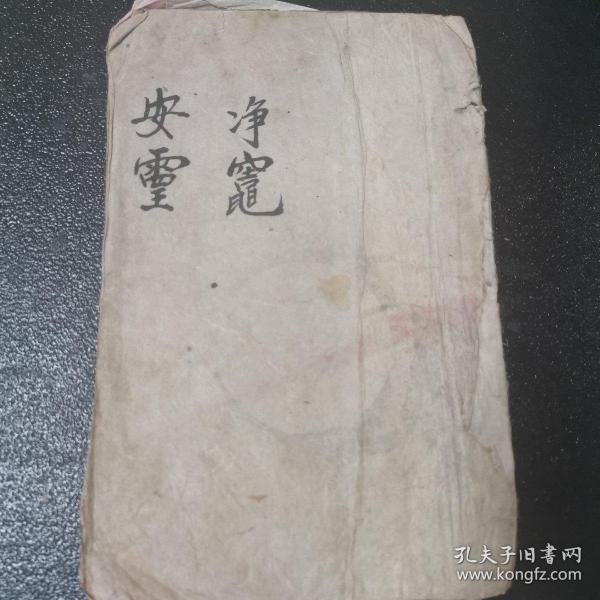 净竈
安靈
孔夫子旧書网
www.kongfz.com